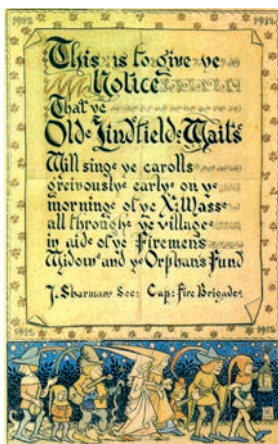 1912 1912
This is to give ye
Notice
That ye
Olde Lindfield Waits
Will singe ye carolls
greivously early on ye
morninge of ye X: Mass
all throughe ye village
in aide of ye Firemens
Widow and ye Orphan's Fund
J. Sharman Sec: Cap: Fire Brigade
1912 1912